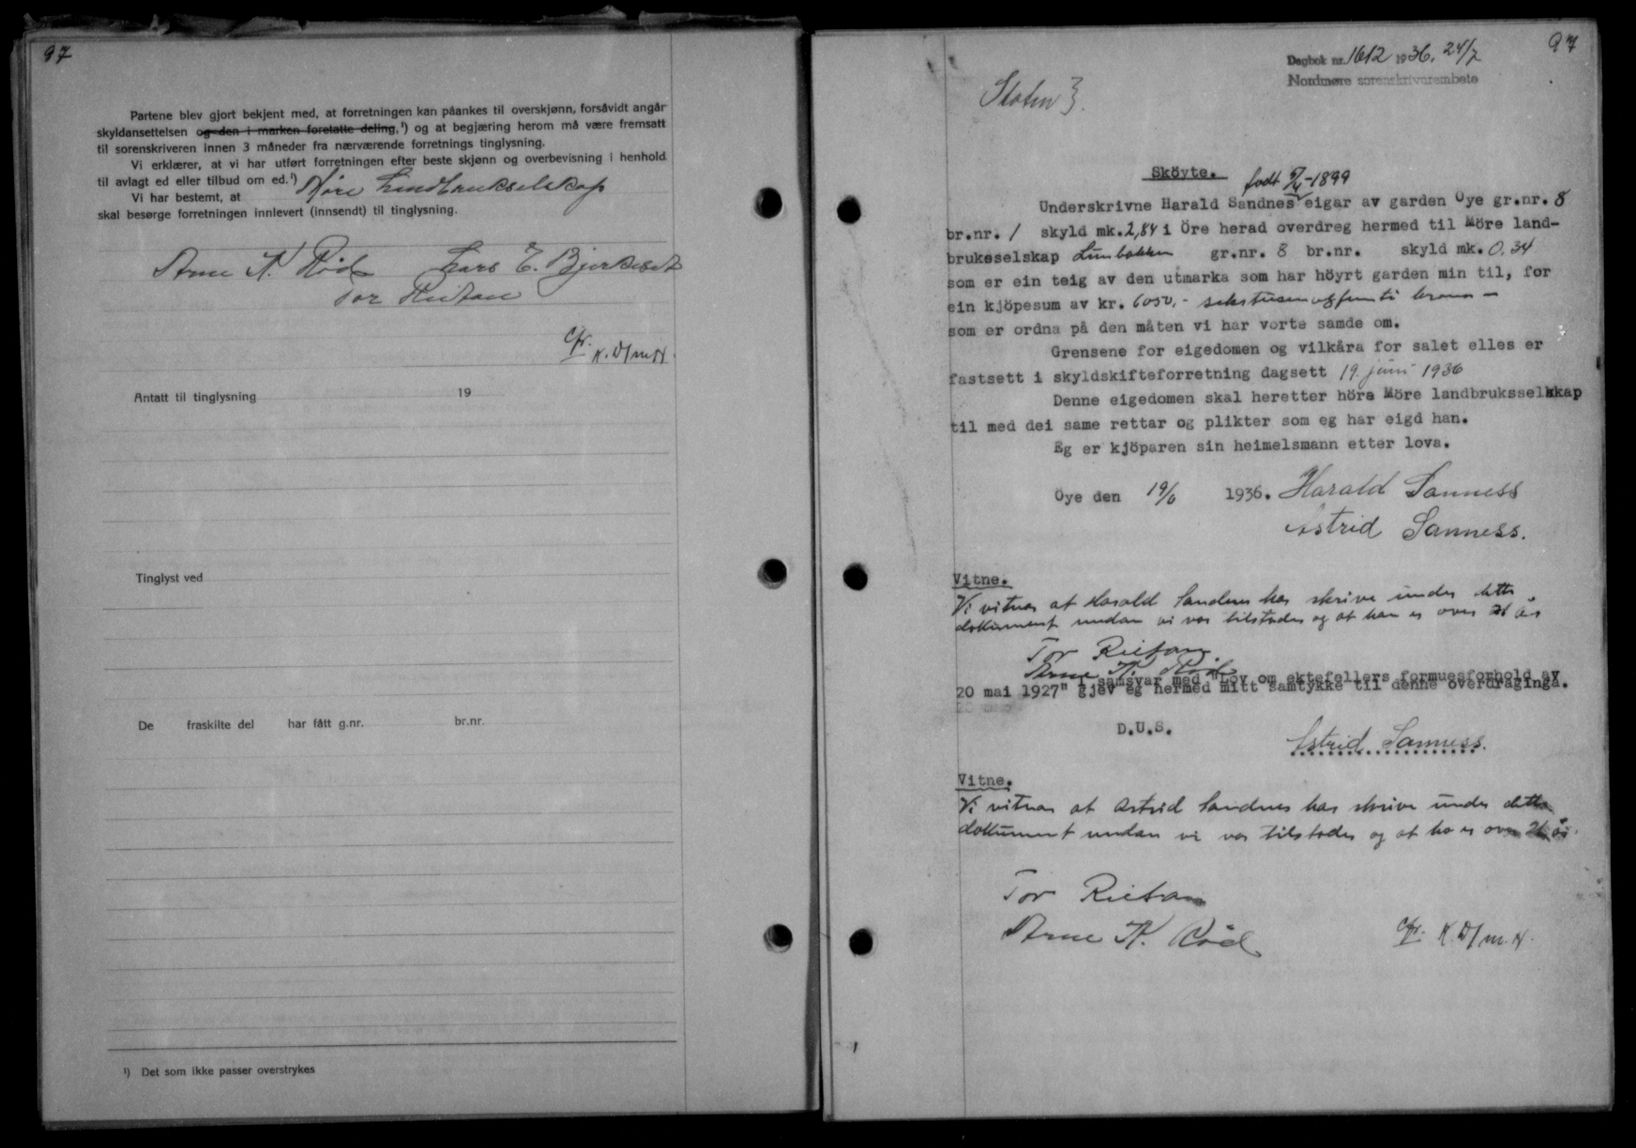 97
Partene blev gjort bekjent med, at forretningen kan påankes til overskjønn, forsåvidt angår
skyldansettelsen og den i marken foretatte deling,¹) og at begjæring herom må være fremsatt
til sorenskriveren innen 3 måneder fra nærværende forretnings tinglysning.
Vi erklærer, at vi har utført forretningen efter beste skjønn og overbevisning i henhold
til avlagt ed eller tilbud om ed.¹)
Vi har bestemt, at Møre Landbrukselskap
skal besørge forretningen innlevert (innsendt) til tinglysning.
Arne K. Rød Lars E. Bjerkeset
Tor Rietan
K.D/m.H.
Antatt til tinglysning 19
Tinglyst ved
De fraskilte del har fått g.nr. br.nr.
¹) Det som ikke passer overstrykes
97
Dagbok nr. 1612 1936. 24/7
Nordmøre sorenskriverembete
Sköyte.
født 5/4-1899
Underskrivne Harald Sandnes eigar av garden Oye gr.nr. 8
br.nr. 1 skyld mk. 2,84 i Öre herad overdreg hermed til Möre land-
brukeselskap gr.nr. 8 br.nr. skyld mk. 0,34
som er ein teig av den utmarka som har höyrt garden min til, for
ein kjöpesum av kr. 6050,- sekstusen og femti kroner -
som er ordna på den måten vi har vorte samde om.
Grensene for eigedomen og vilkåra for salet elles er
fastsett i skyldskifteforretning dagsett 19. juni 1936
Denne eigedomen skal heretter höra Möre landbruksselskap
til med dei same rettar og plikter som eg har eigd han.
Eg er kjöparen sin heimelsmann etter lova.
Öye den 19/6 1936. Harald Sanness
Astrid Sanness.
Vitne.
Vi vitnar at Harald Sandnes har skrive under dette
dokument medan vi var tilstades og at han er over 21 år
Tor Rietan.
Arne K. Rød
I samsvar med "Lov om ektefellers formuesforhold av
20 mai 1927" gjev eg hermed mitt samtykke til denne overdraginga.
D.U.S.
Astrid Sanness.
Vitne.
Vi vitnar at Astrid Sandnes har skrive under dette
dokument medan vi var tilstades og at ho er over 21 år.
Tor Rietan
Arne K. Rød
K.D/m.H.